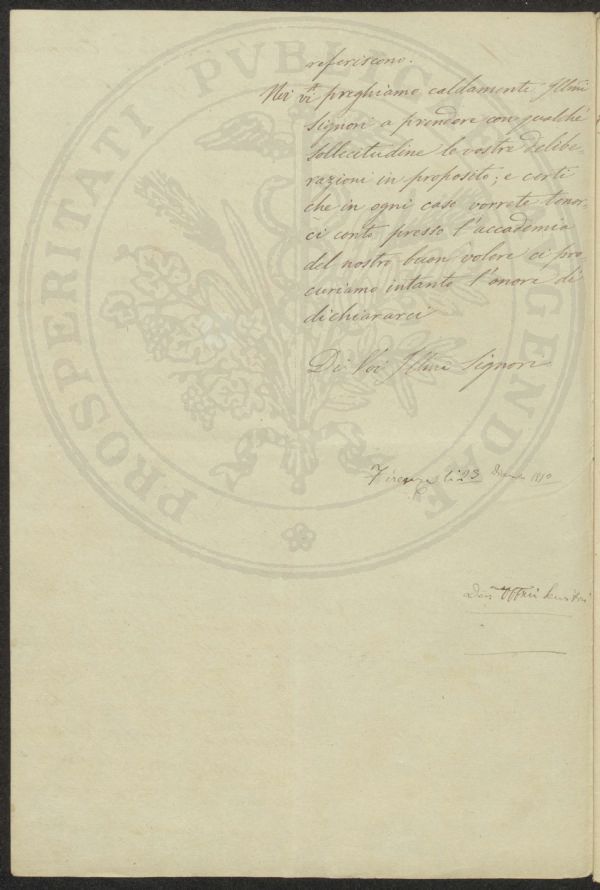 referiscono.
Noi vi preghiamo caldamente Illmi
Signori a prendere con qualche
sollecitudine le vostre delibe-
razioni in proposito; e certi
che in ogni caso vorrete tener-
ci conto presso l'accademia
del nostro buon volere ci pro
curiamo intanto l'onore di
dichiararci
Di Voi Illmi Signori
Firenze li 23
Dev
PROSPERITATI PVBLICAE AVGENDAE